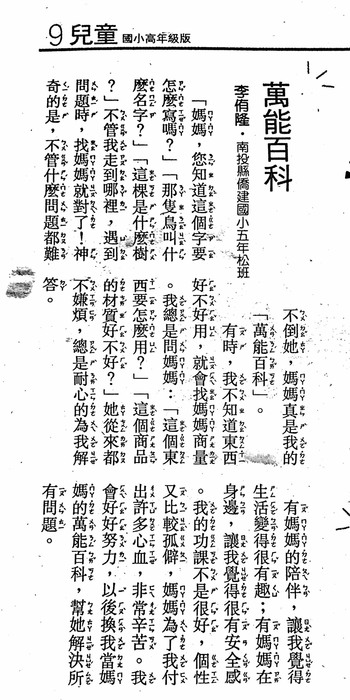 9 兒童 國小高年級版
萬能百科
李侑隆・南投縣僑建國小五年松班
「媽媽，您知道這個字要
怎麼寫嗎？」「那隻鳥叫什
麼名字？」「這棵是什麼樹
？」不管我走到哪裡，遇到
問題時，找媽媽就對了！神
奇的是，不管什麼問題都難
不倒她，媽媽真是我的
「萬能百科」。
有時，我不知道東西
好不好用，就會找媽媽商量
。我總是問媽媽：「這個東
西要怎麼用？」「這個商品
的材質好不好？」她從來都
不嫌煩，總是耐心的為我解
答。
有媽媽的陪伴，讓我覺得
生活變得很有趣；有媽媽在
身邊，讓我覺得很有安全感
。我的功課不是很好，個性
又比較孤僻，媽媽為了我付
出許多心血，非常辛苦。我
會好好努力，以後換我當媽
媽的萬能百科，幫她解決所
有問題。